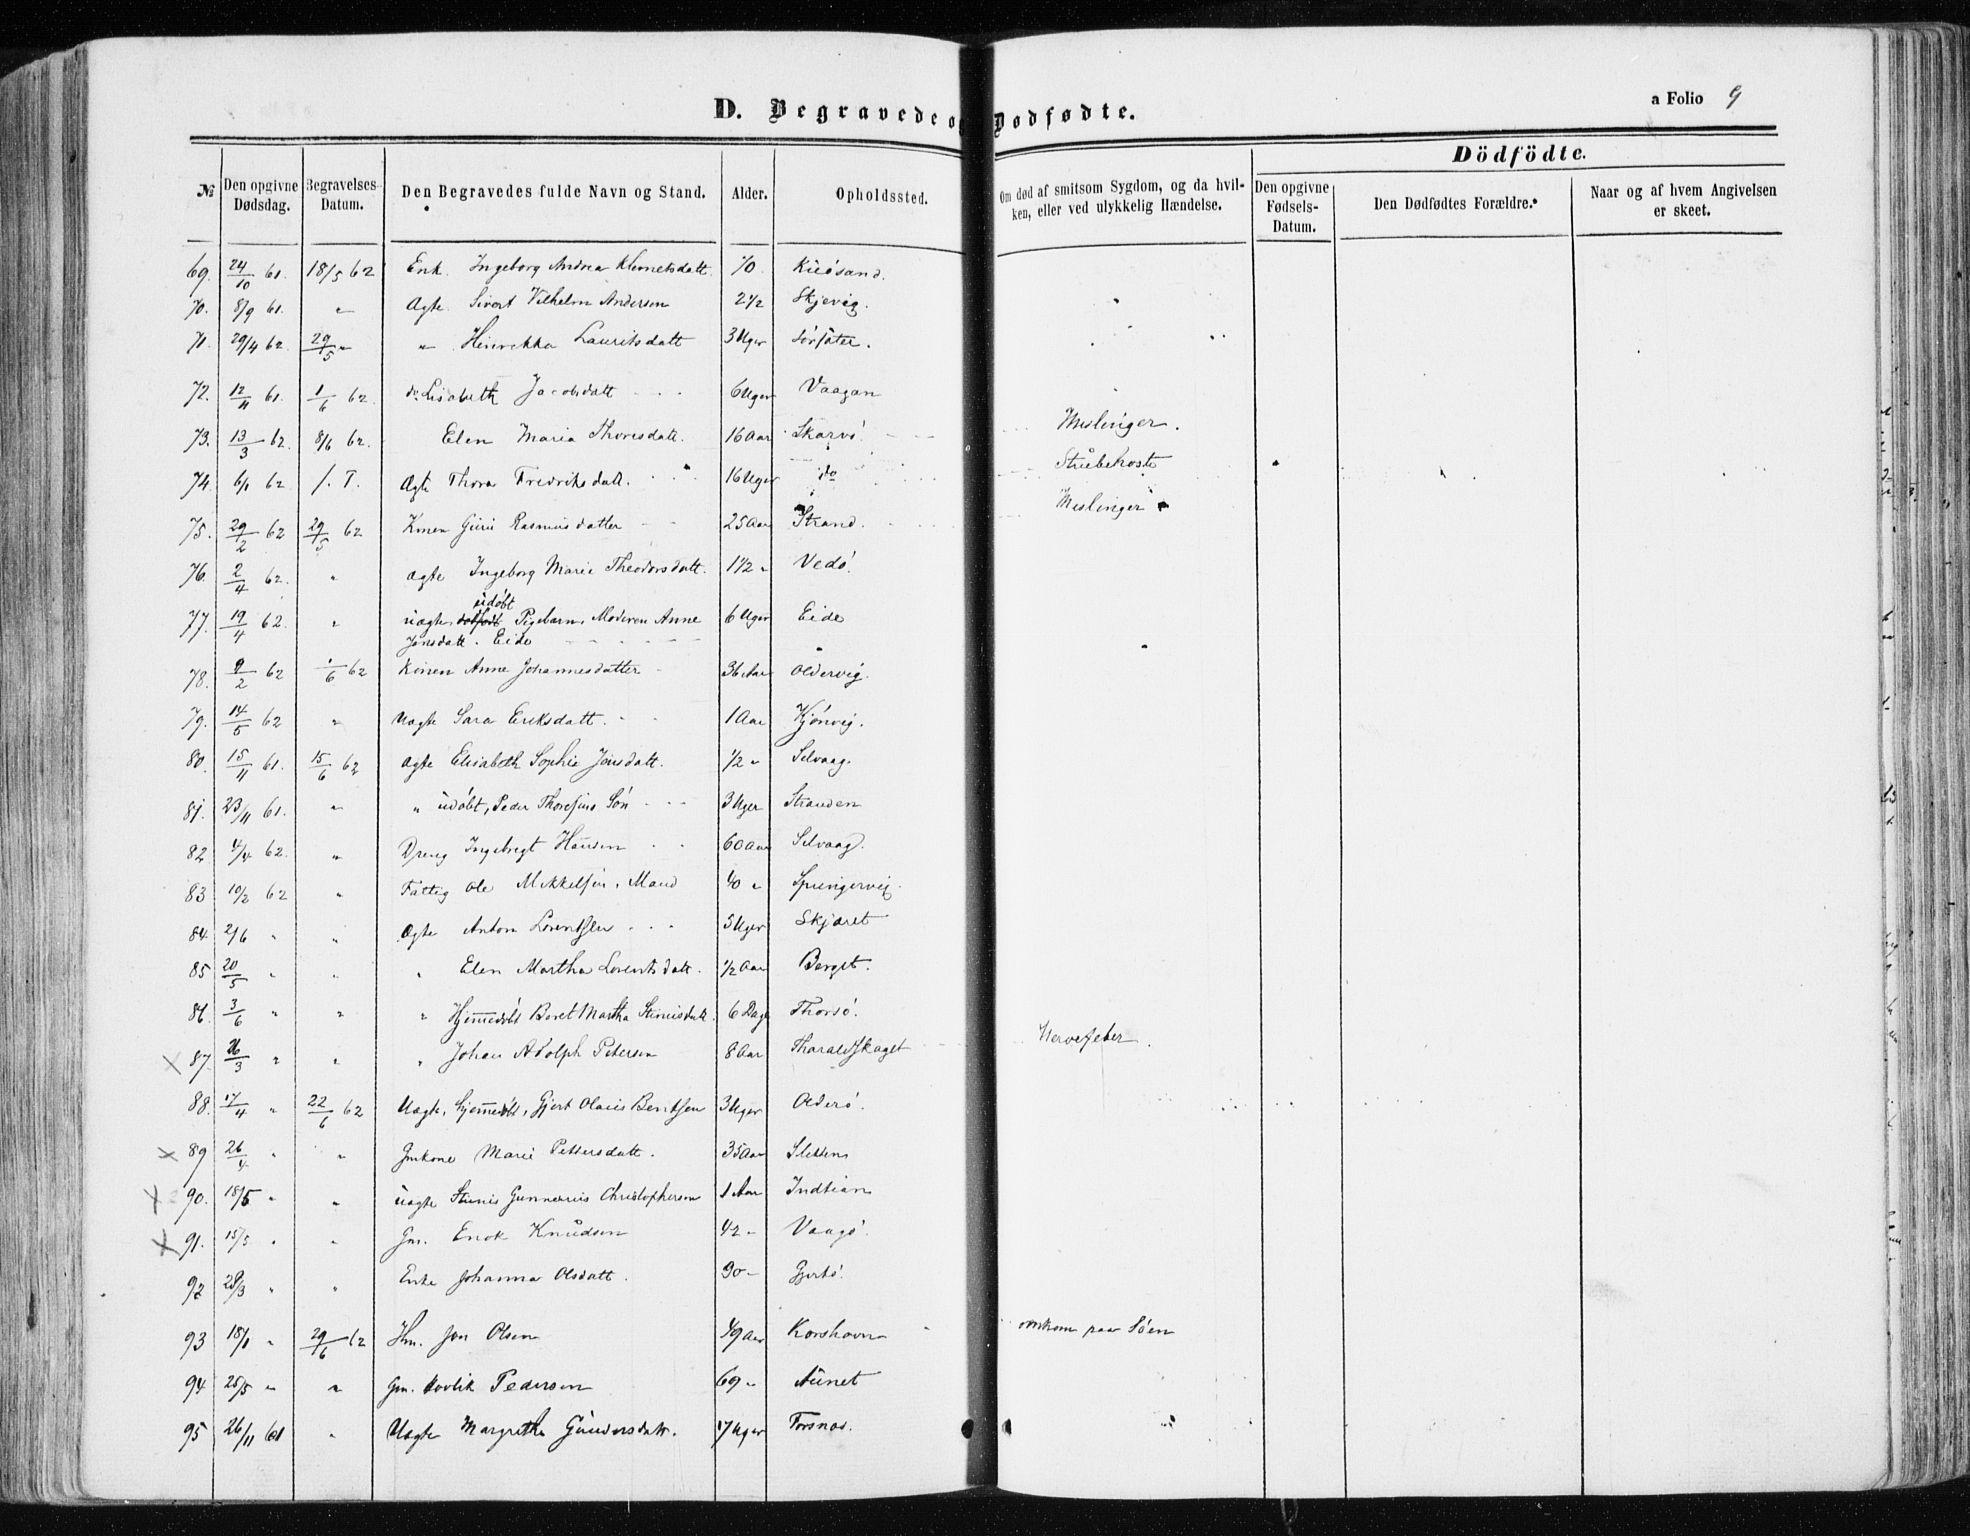 D. Begravede og Dødfødte.
a Folio 9
Dödfödte.
№ Den opgivne Dødsdag. Begravelses-Datum. Den Begravedes fulde Navn og Stand. Alder. Opholdssted. Om død af smitsom Sygdom, og da hvilken, eller ved ulykkelig Hændelse. Den opgivne Fødsels-Datum. Den Dødfødtes Forældre. Naar og af hvem Angivelsen er skeet.
69. 24/10 61. 18/5 62 Enk. Ingeborg Andrea Klemetsdatt. 70.
70. 8/9 61. " Ægte. Sivert Vilhelm Andersen 2 1/2 Skjevig.
71. 29/4 62. 29/5 " " Henrikka Lauritsdatt 3 Uger Sørsæter.
72. 12/11 61. 1/6 62. do Lisabeth Jacobsdatt 6 Uger Vaagan
73. 13/3 62. 8/6 62. Elen Maria Thoresdatt. 16 Aar Skarvø. Meslinger.
74. 6/1 62 f. T. Ægte Thora Fredriksdatt. 16 Uger do Strübehoste
75. 29/2 62 29/5 62 Konen Guri Rasmusdatter 25 Aar Strand. Meslinger
76. 2/4 62. " Ægte Ingeborg Marie Theodorsdatt. 1 1/2 " Vedø.
77. 19/4 62. " uægte udøbt Pigebarn, Moderen Anne 6 Uger Eide
Jonsdatt. Eide
78. 9/2 62 1/6 62 Konen Anne Johannesdatter 36 Aar Oldervig.
79. 14/5 62 " Uægte Sara Eriksdatt. 1 Aar Kjønvig.
80. 15/11 61. 15/6 62 Ægte Elisabeth Sophie Jonsdatt. 1/2 " Selvaag.
81. 23/11 61. " " udøbt, Peder Thoresius Søn 3 Uger Stranden
82 4/4 62. " Dreng Ingebregt Hansen 60 Aar Selvaag.
83 10/2 62 " Fattig Ole Mikkelsen, Mand 40 " Springervig.
84 2/6 " " Ægte Anton Lorentsen 3 Uger Skjæret
85 20/5 " " " Elen Martha Lorentsdatt. 1/2 Aar Berget.
86. 3/6 " " " Hjemmedøbt Beret Martha Stinusdatt. 6 Dage Thorsø.
87. 26/3 " " " Johan Adolph Petersen 8 Aar Tharaldskaget Nervefeber.
88. 17/4 " 22/6 62 Uægte, hjemmedøbt, Gjert Olaus Bentsen 3 Uger Olderø.
89 26/4 " " Gmkone Marie Pettersdatt. 35 Aar Sletten
90. 18/5 " " uægte Stinus Gunnerius Christophersen 1 Aar Indtian
91. 15/5 " " Gm. Enok Knudsen 42 " Vaagø.
92 28/3 " " Enke Johanna Olsdatt. 90 " Gjertø.
93 18/1 " 29/6 62 Hm. Jon Olsen 49 Aar Korshavn omkom paa Søen
94 25/5 " " Gm. Hovlik Pedersen 69 " Aunet
95 26/11 61 " Uægte Margretha Gundersdatt. 17 Uger Forsnes.